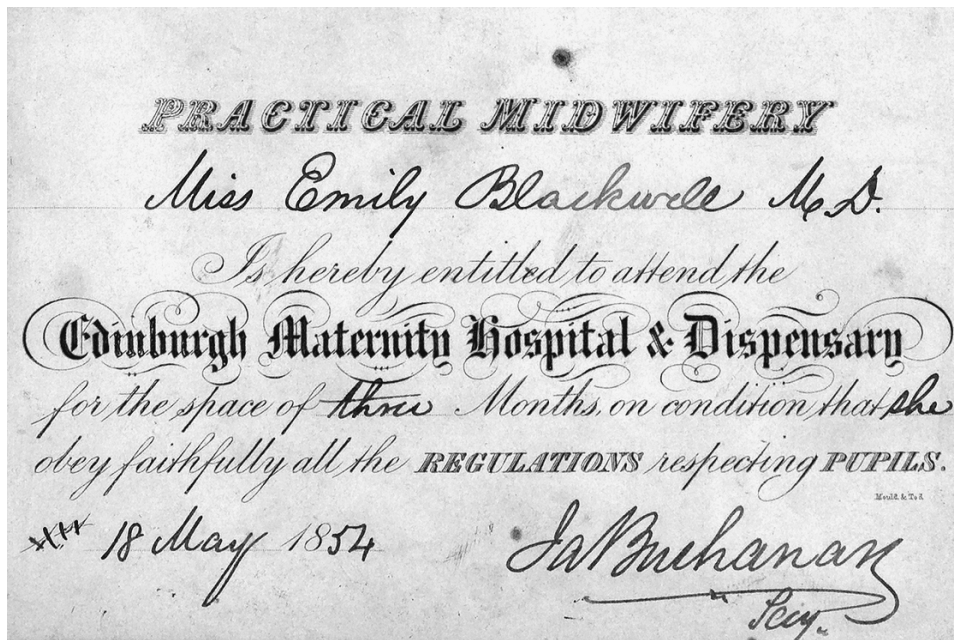 PRACTICAL MIDWIFERY
Miss Emily Blackwell M.D.
Is hereby entitled to attend the
Edinburgh Maternity Hospital & Dispensary
for the space of three Months, on condition that she
obey faithfully all the REGULATIONS respecting PUPILS.
Mould & Tod
18 May 1854
Ja Buchanan
Secy.